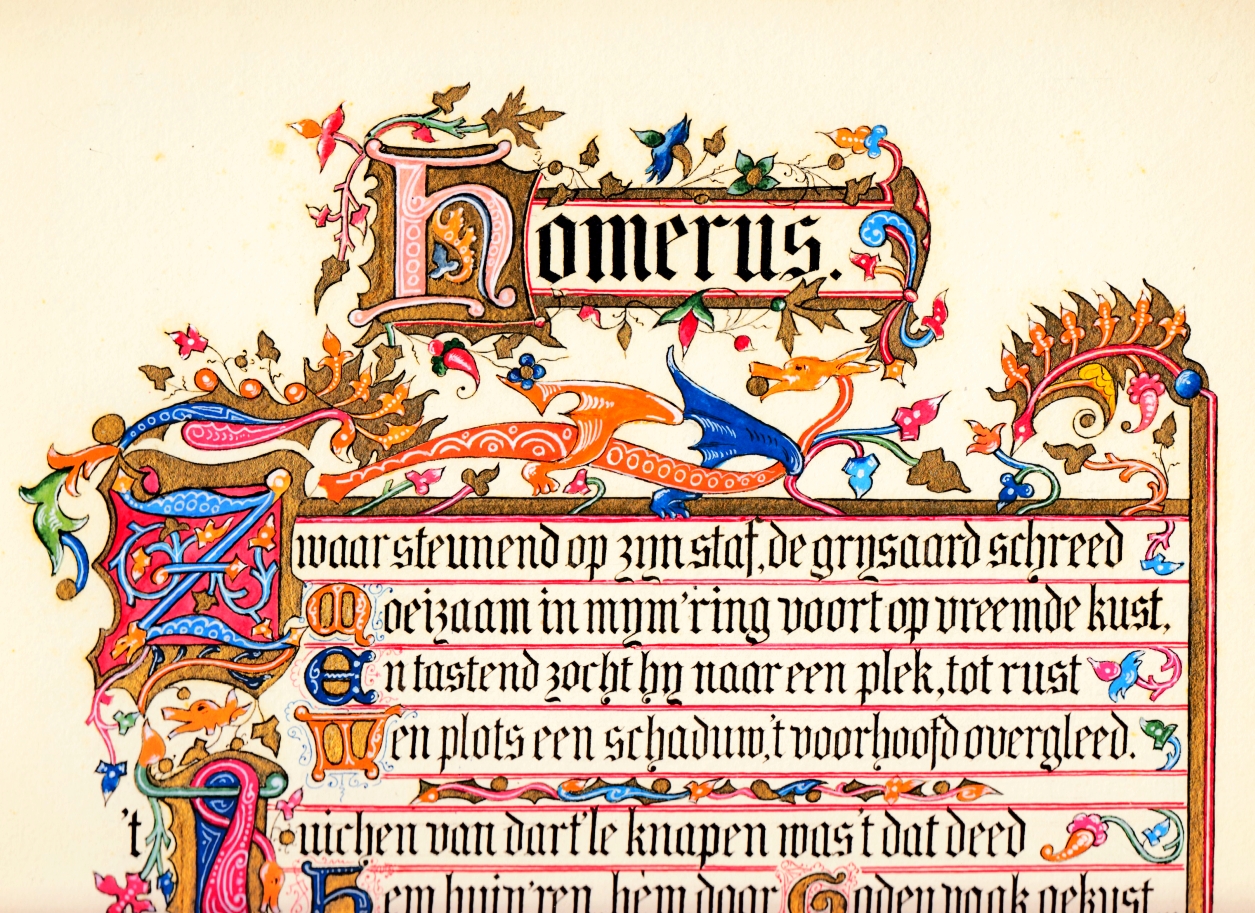 Homerus.
Zwaar steunend op zyn staf, de grysaard schreed
Moeizaam in mym'ring voort op vreemde kust,
En tastend zocht hy naar een plek, tot rust
Wen plots een schaduw, 't voorhoofd overgleed.
't Juichen van dart'le knapen was 't dat deed
Hem huiv'ren hèm door Goden vaak gekust